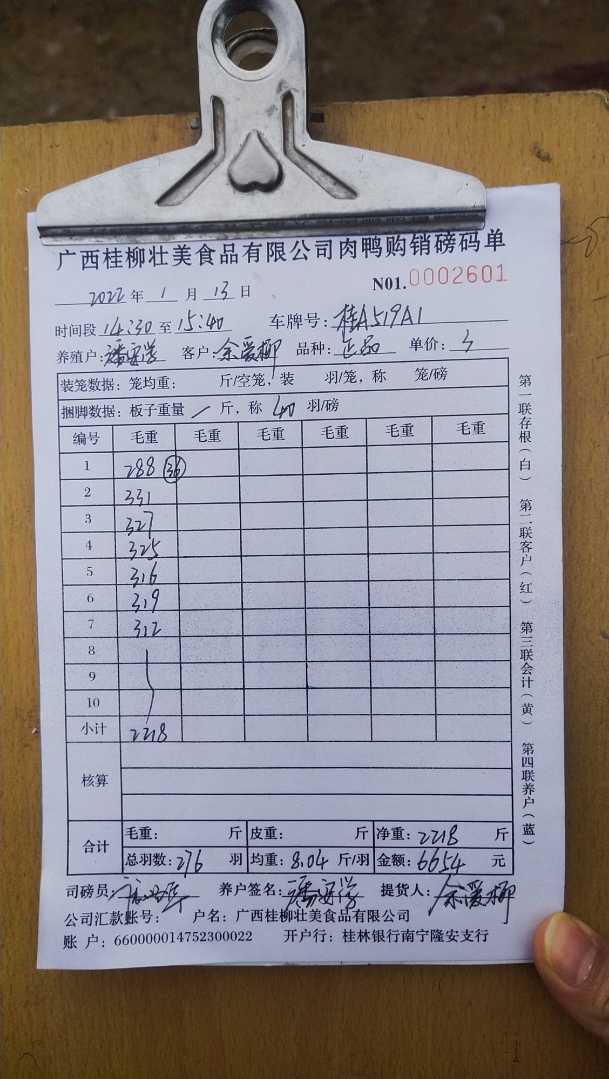 广西桂柳壮美食品有限公司肉鸭购销磅码单
2022 年 1 月 13 日 N01.0002601
时间段 14:30 至 15:40 车牌号: 桂A519A1
养殖户: 潘安学 客户: 余爱柳 品种: 正品 单价: 3
装笼数据: 笼均重: 斤/空笼, 装 羽/笼, 称 笼/磅
捆脚数据: 板子重量 / 斤, 称 40 羽/磅
编号 毛重 毛重 毛重 毛重 毛重 毛重
1 288 36
2 331
3 327
4 325
5 316
6 319
7 312
8
9
10
小计 2218
核算
合计 毛重: 斤 皮重: 斤 净重: 2218 斤
总羽数: 276 羽 均重: 8.04 斤/羽 金额: 6654 元
司磅员: 养户签名: 潘安学 提货人: 余爱柳
公司汇款账号: 户名: 广西桂柳壮美食品有限公司
账 户: 660000014752300022 开户行: 桂林银行南宁隆安支行
第一联存根(白) 第二联客户(红) 第三联会计(黄) 第四联养户(蓝)